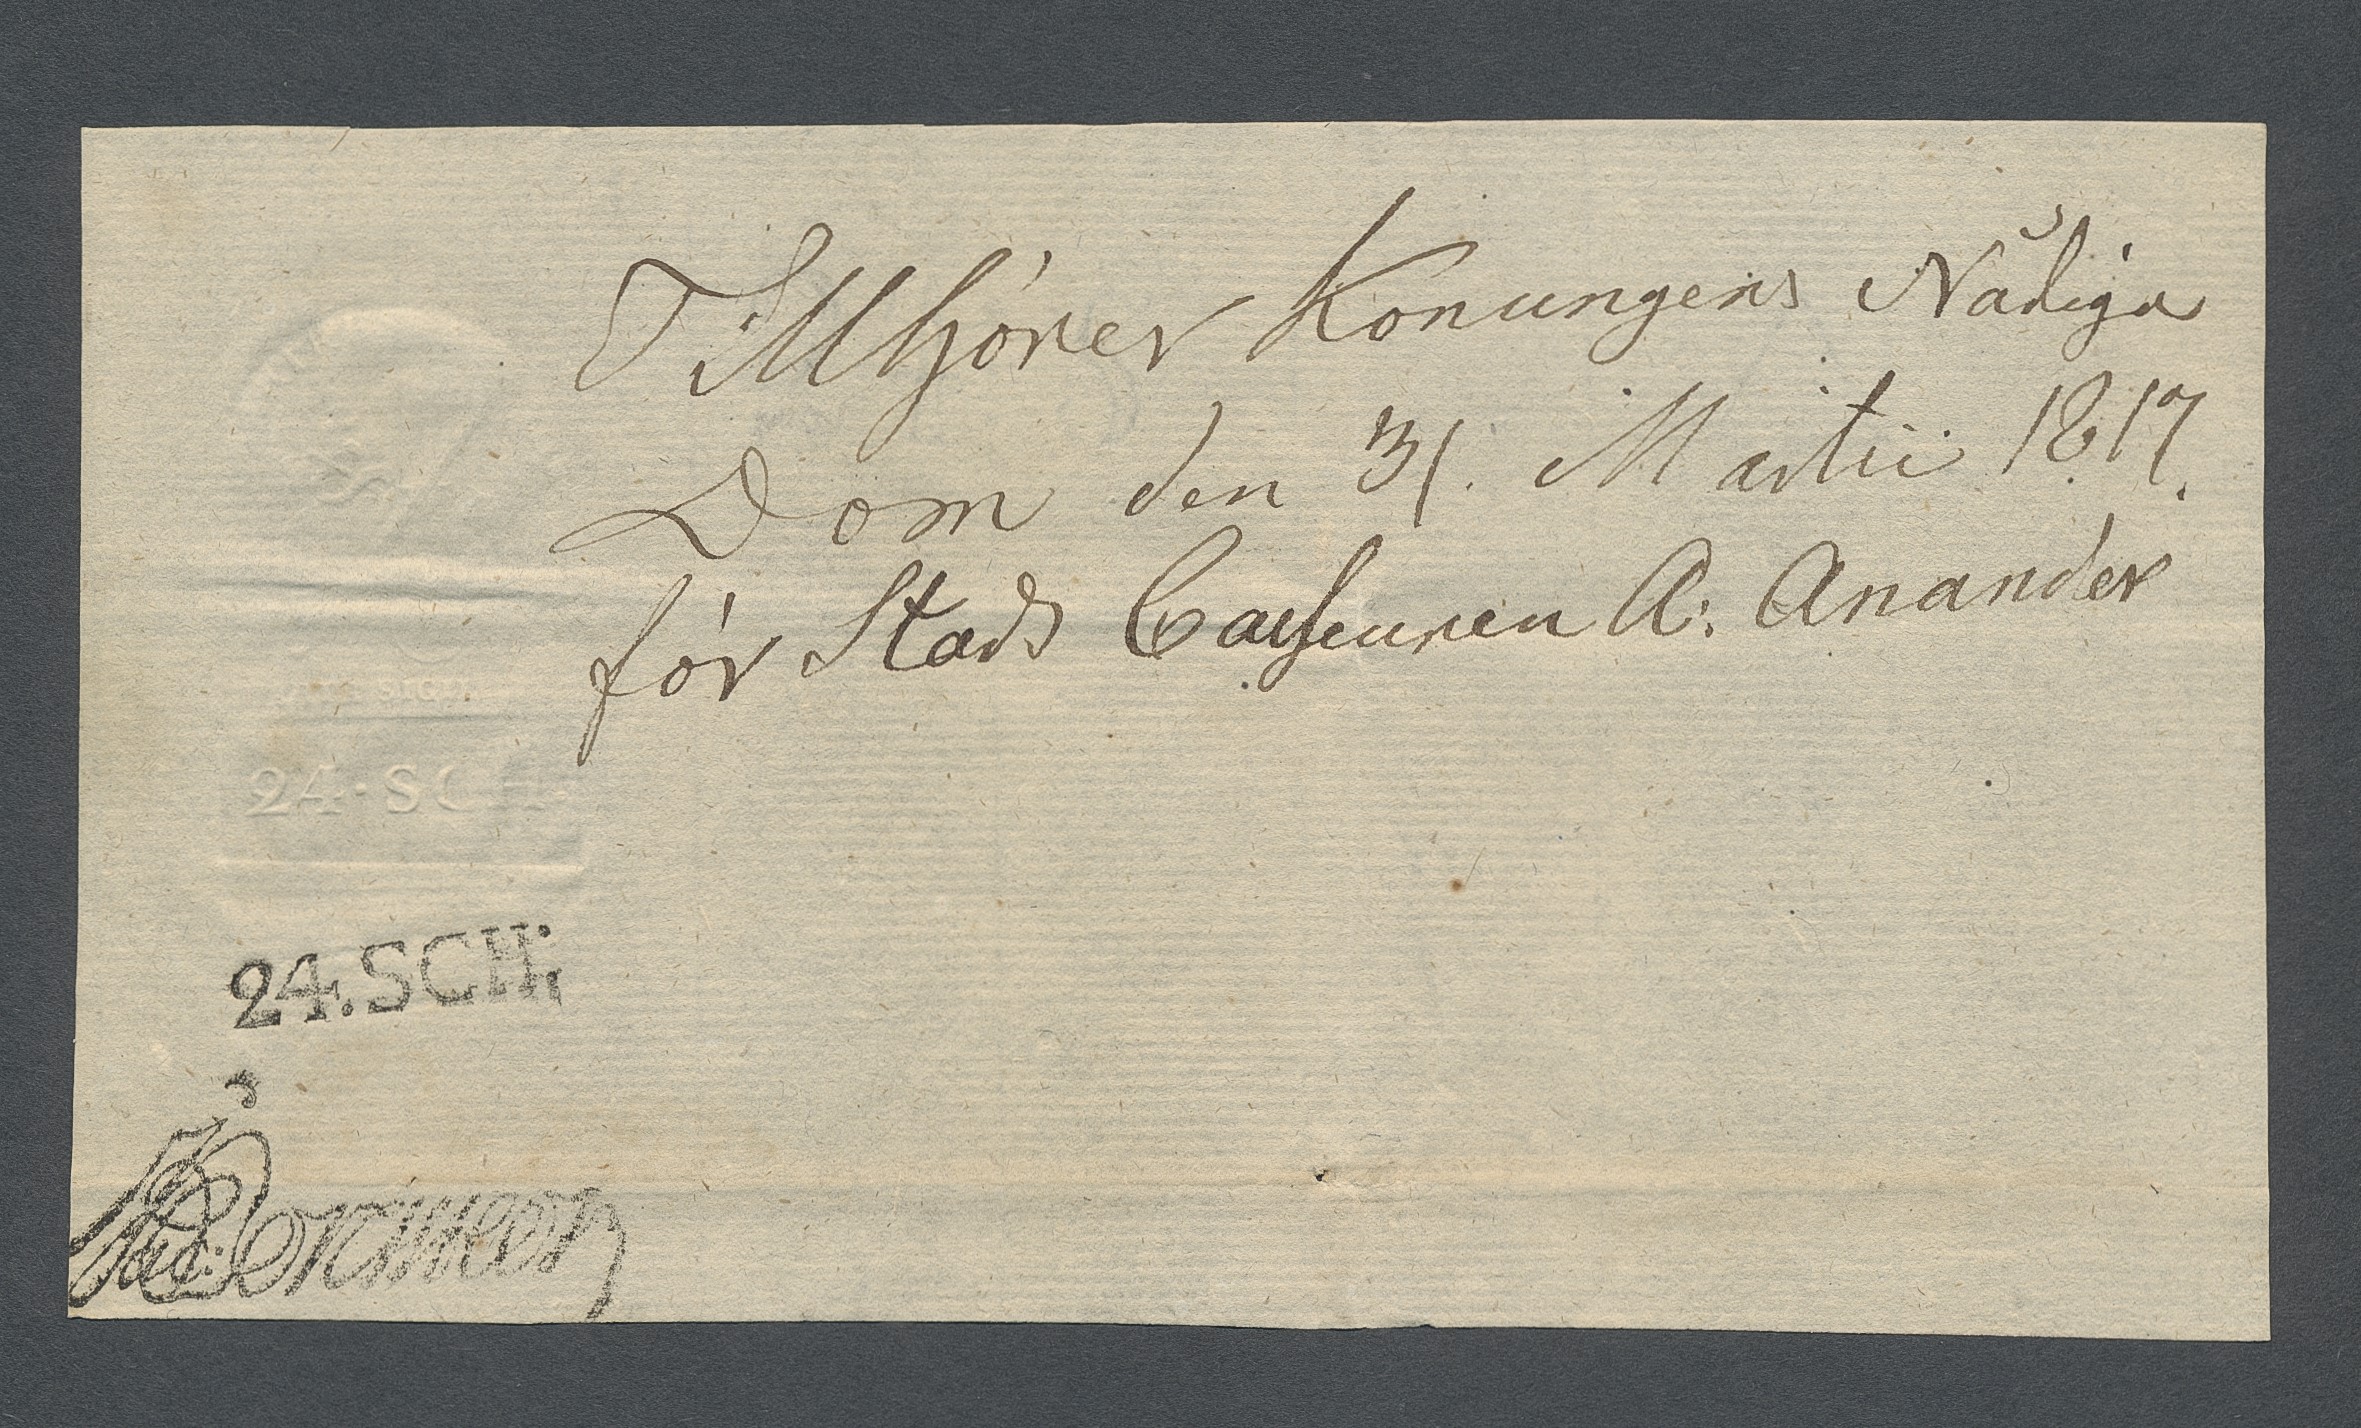 Tillhörer Konungens Nådiga
Dom den 31. Martii 1817.
för Stads Casseuren A: Anander
24.SCH.
24.SCH: